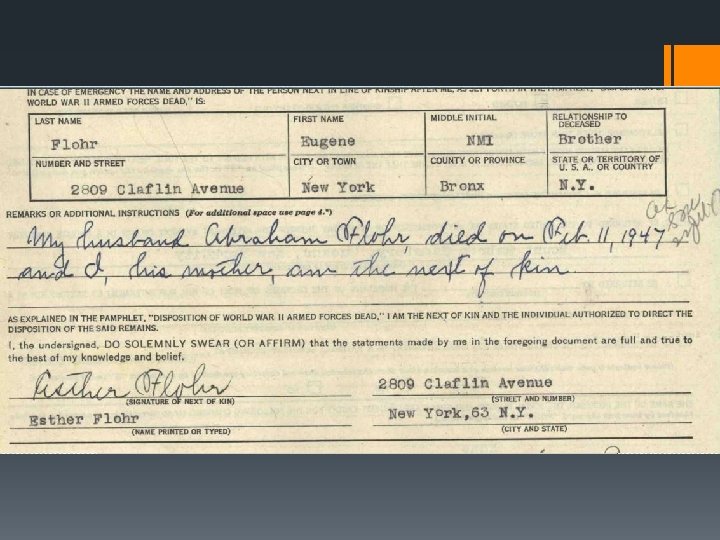 IN CASE OF EMERGENCY THE NAME AND ADDRESS OF THE PERSON NEXT IN LINE OF KINSHIP AFTER ME, AS SET FORTH IN THE PAMPHLET, "DISPOSITION OF
WORLD WAR II ARMED FORCES DEAD," IS:
LAST NAME FIRST NAME MIDDLE INITIAL RELATIONSHIP TO DECEASED
Flohr Eugene NMI Brother
NUMBER AND STREET CITY OR TOWN COUNTY OR PROVINCE STATE OR TERRITORY OF U. S. A., OR COUNTRY
2809 Claflin Avenue New York Bronx N.Y.
REMARKS OR ADDITIONAL INSTRUCTIONS (For additional space use page 4.*)
My husband Abraham Flohr, died on Feb. 11, 1947
and I, his mother, am the next of kin
AS EXPLAINED IN THE PAMPHLET, "DISPOSITION OF WORLD WAR II ARMED FORCES DEAD," I AM THE NEXT OF KIN AND THE INDIVIDUAL AUTHORIZED TO DIRECT THE
DISPOSITION OF THE SAID REMAINS.
I, the undersigned, DO SOLEMNLY SWEAR (OR AFFIRM) that the statements made by me in the foregoing document are full and true to
the best of my knowledge and belief.
Esther Flohr 2809 Claflin Avenue
(SIGNATURE OF NEXT OF KIN) (STREET AND NUMBER)
Esther Flohr New York,63 N.Y.
(NAME PRINTED OR TYPED) (CITY AND STATE)